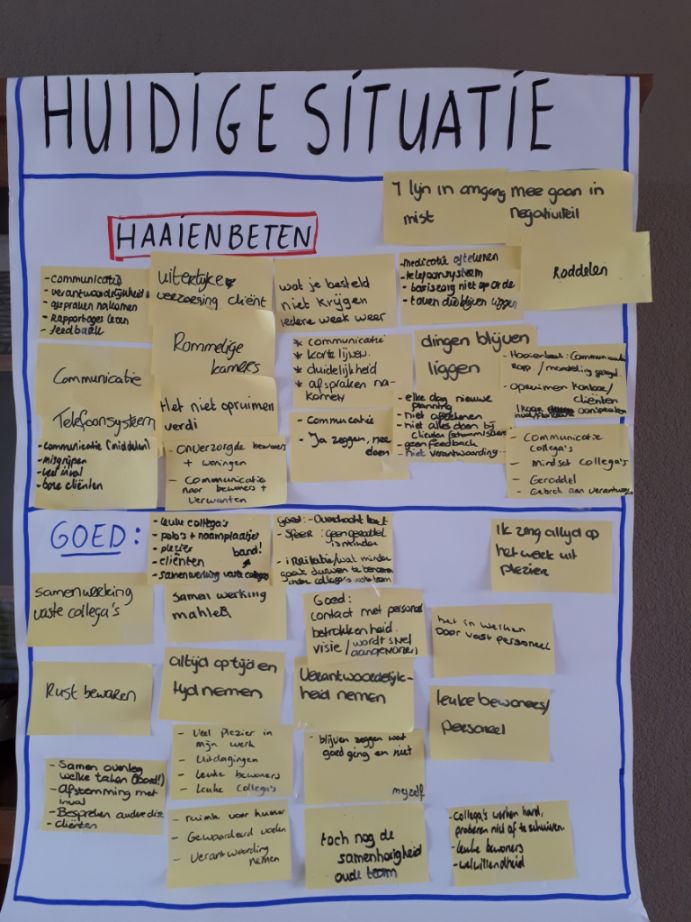 HUIDIGE SITUATIE
HAAIENBETEN
1 lijn in omgang
mist
mee gaan in
negativiteit
- communicatie
- verantwoordelijkheid
- afspraken nakomen
- Rapportages lezen
- feedback
uiterlijke
verzorging cliënt
wat je besteld
niet krijgen
iedere week weer
- medicatie aftekenen
- telefoonsysteem
- basiszorg niet op orde
- taken die blijven liggen
Roddelen
Communicatie
Rommelige
kamers
* communicatie
* korte lijnen
* duidelijkheid
* afspraken na-
komen
dingen blijven
liggen
- Haaienbeet: Communicatie
opruimen kantoor/
cliënten
Telefoonsysteem
- communicatie (middelen)
- misgrijpen
- veel inval
- boze cliënten
Het niet opruimen
verdi
- onverzorgde bewoners
+ woningen
- communicatie
naar bewoners +
verwanten
- Communicatie
- Ja zeggen, nee
doen
- elke dag nieuwe
planning
- niet aftekenen
- niet alles doen bij
- geen feedback
- niet verantwoording
- Communicatie
collega's
- mindset collega's
- Geroddel
- Gebrek aan verantwoor
GOED:
- leuke collega's
- polo's + naamplaatje
- plezier band!
- cliënten
- samenwerking vaste collega's
Goed: - Overdracht
- Sfeer: geen geroddel
is minder
Ik zorg altijd op
het werk uit
plezier
samenwerking
vaste collega's
Samen werking
Goed:
contact met personeel
betrokkenheid
visie / wordt snel
aangenomen
het in werken
Door vast personeel
Rust bewaren
altijd op tijd en
tijd nemen
Verantwoordelijk-
heid nemen
leuke bewoners/
personeel
- Samen overleg
welke taken (bord!)
- Afstemming met
inval
- Bespreken andere disc
- cliënten
- Veel plezier in
mijn werk
- Uitdagingen
- Leuke bewoners
- Leuke Collega's
- blijven zeggen wat
goed ging en niet
myself
- ruimte voor humor
- Gewaardeerd voelen
- Verantwoording
nemen
toch nog de
samenhorigheid
oude team
- Collega's werken hard,
proberen niet af te schuiven
- leuke bewoners
- welwillendheid